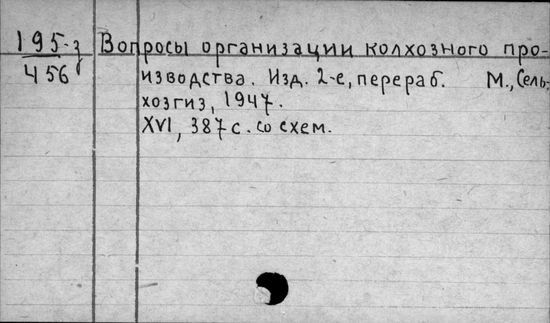 195-з Вопросы организации колхозного про-
456 изводства. Изд. 2-е, перераб. М., Сель-
хозгиз, 1947.
XVI, 387 с. со схем.